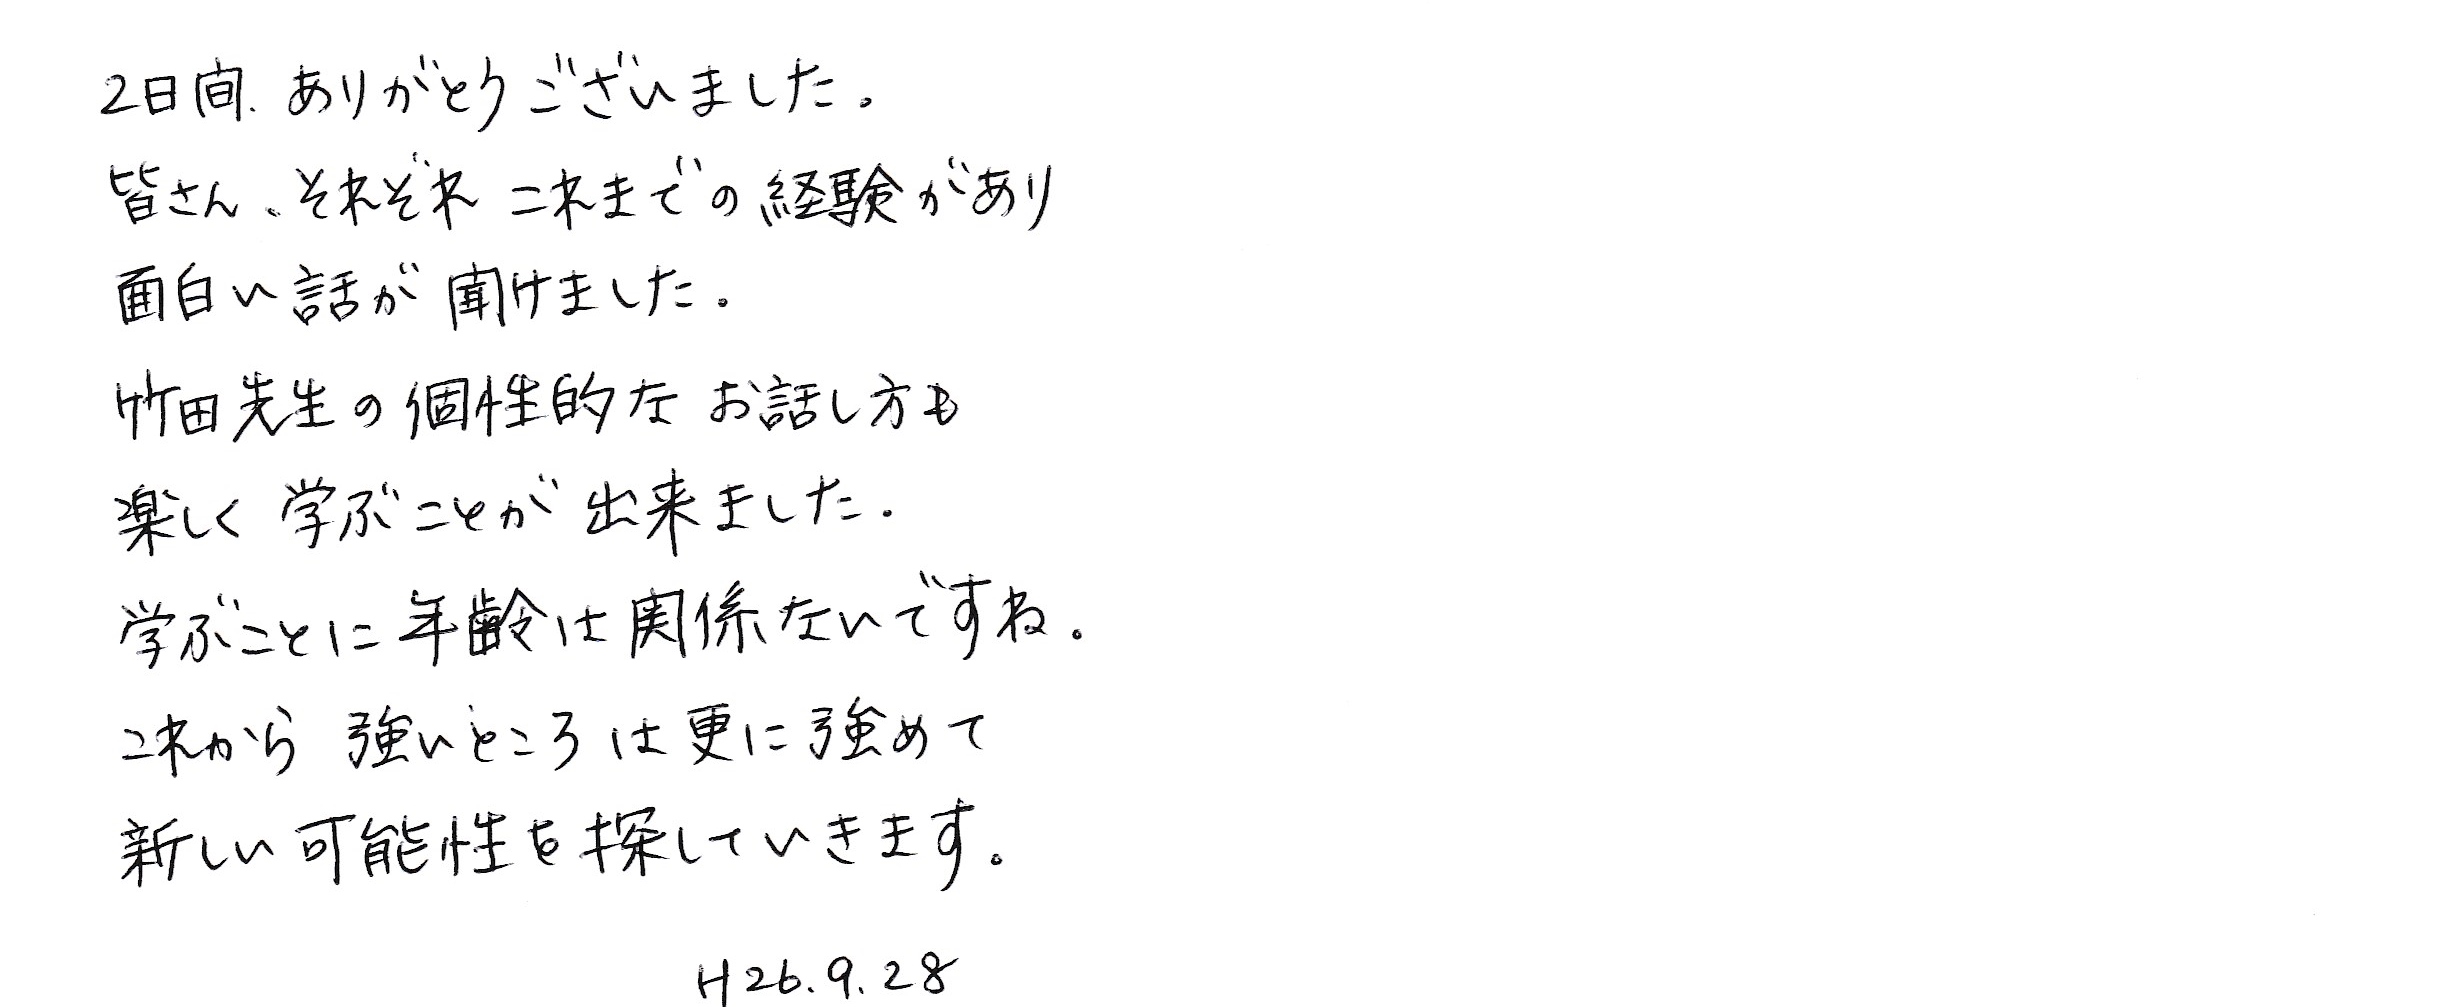 2日間、ありがとうございました。
皆さん、それぞれ これまでの経験があり
面白い話が 聞けました。
竹田先生の個性的な お話し方も
楽しく 学ぶことが 出来ました。
学ぶことに年齢は関係ないですね。
これから 強いところは更に強めて
新しい可能性を探していきます。
H26.9.28